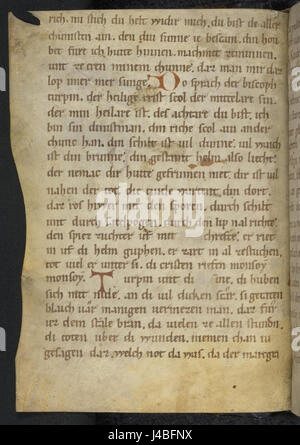 rich. nu stich du helt widir mich. du bist de aller
chunisten ain. den diu sunne ie beschain. din hou
bet fure ich hutte hinnen. mach mit
unt ere ich minem chunne. daz man mir daz
lop imer mer singe. Do sprach der biscoph
turpin. der heilige crist scol der mittelare sin.
der min hailare ist. des achtare du bist. ich
bin sin dinistman. din riche scol ain ander
chunc han. din schilt ist uil dunne. uil waich
ist din brunne. din gestainit helm also liecht.
der nemac dir hutte gefrumen niet. dir ist uil
nahen der tot. der guote din dort.
daz ros hiw er mit den sporen. durch schilt
unt durch satelpogen. durch den lip nalrichte.
den spiez ruchter uf mit chrefte. er riet
in uf di helm guphen. er zart in al zestuchen.
tot uiel er unter si. di cristen riefen monsoy
monsoy. Turpin unt di sine. di huben
sich mit nide. an di uil dicken scar. si getaten
blaich uar manigen uermezen man. daz fiur
uz dem stale bran. da uielen ze allen stunden
di toten uber di wunden. niemen chan iu
gesagen daz. welch not da was. da der mangen